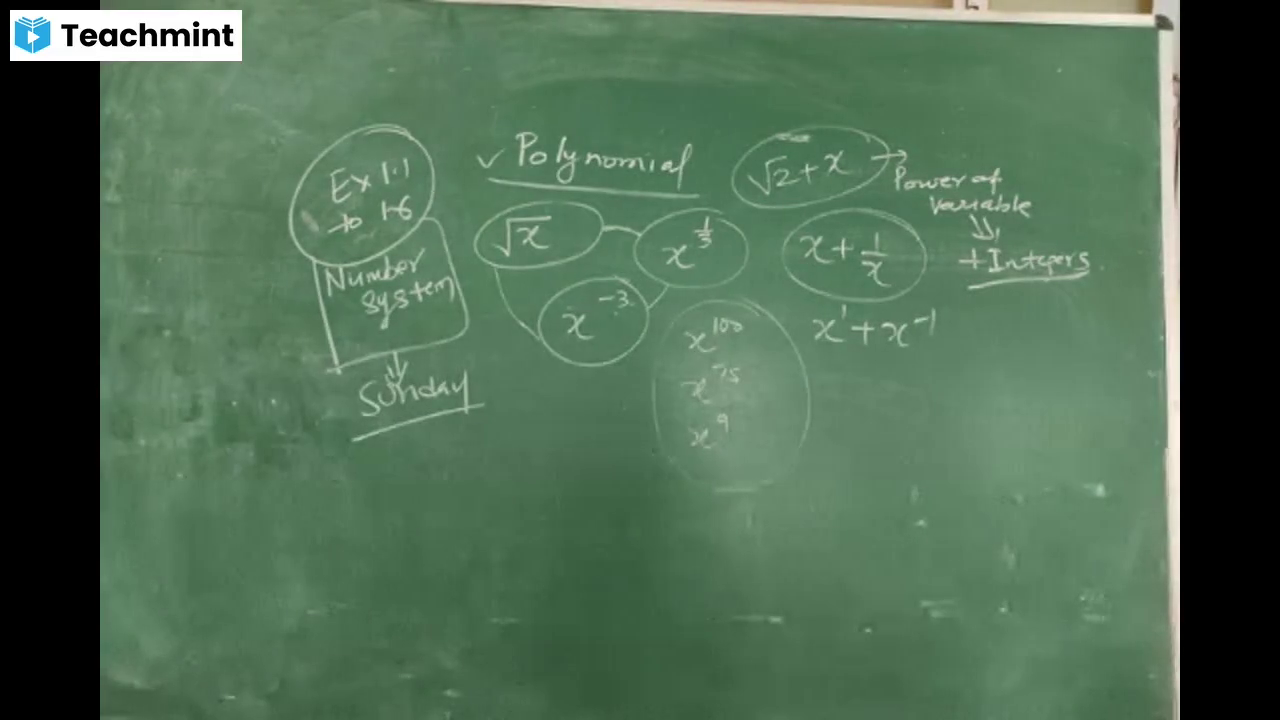 Teachmint
Ex 1.1
to 1.6
Number
system
Sunday
✓ Polynomial
√x
x^(1/3)
x^-3
x^100
x^75
x^9
√2+x →
Power of
variable
+Integers
x+1/x
x^1+x^-1